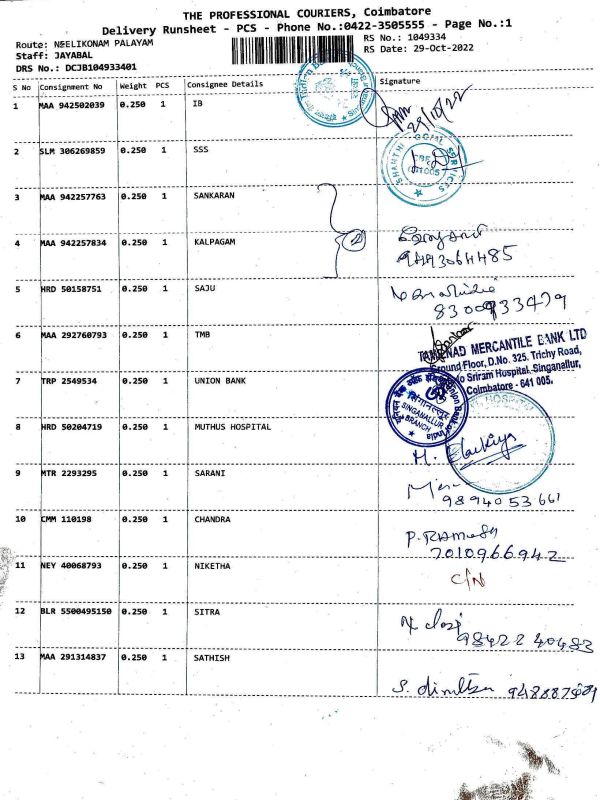 THE PROFESSIONAL COURIERS, Coimbatore
Delivery Runsheet - PCS - Phone No.:0422-3505555 - Page No.:1
Route: NEELIKONAM PALAYAM
RS No.: 1049334
Staff: JAYABAL
RS Date: 29-Oct-2022
DRS No.: DCJB104933401
S No Consignment No Weight PCS Consignee Details Signature
1 MAA 942502039 0.250 1 IB
29/10/22
2 SLM 306269859 0.250 1 SSS
SHANTHI SOCIAL SERVICES
3 MAA 942257763 0.250 1 SANKARAN
4 MAA 942257834 0.250 1 KALPAGAM
2
5 HRD 50158751 0.250 1 SAJU
6 MAA 292760793 0.250 1 TMB
TAMILNAD MERCANTILE BANK LTD
Ground Floor, D.No. 325. Trichy Road,
Sriram Hospital, Singanallur,
Coimbatore - 641 005.
7 TRP 2549534 0.250 1 UNION BANK
Union Bank of India
SINGANALLUR
BRANCH
8 HRD 50204719 0.250 1 MUTHUS HOSPITAL
HOSPITAL
9 MTR 2293295 0.250 1 SARANI
98940 53661
10 CMM 110198 0.250 1 CHANDRA
P. RAMESH
7010966942
11 NEY 40068793 0.250 1 NIKETHA
C/N
12 BLR 5500495150 0.250 1 SITRA
98422 40483
13 MAA 291314837 0.250 1 SATHISH